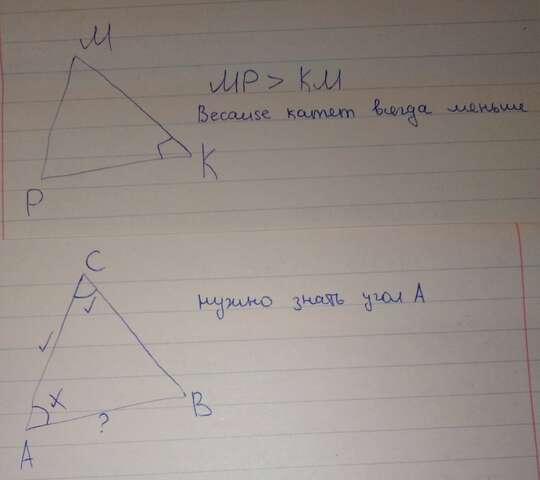 M
MP > KM
Because катет всегда меньше
K
P
C
нужно знать угол A
x
B
?
A